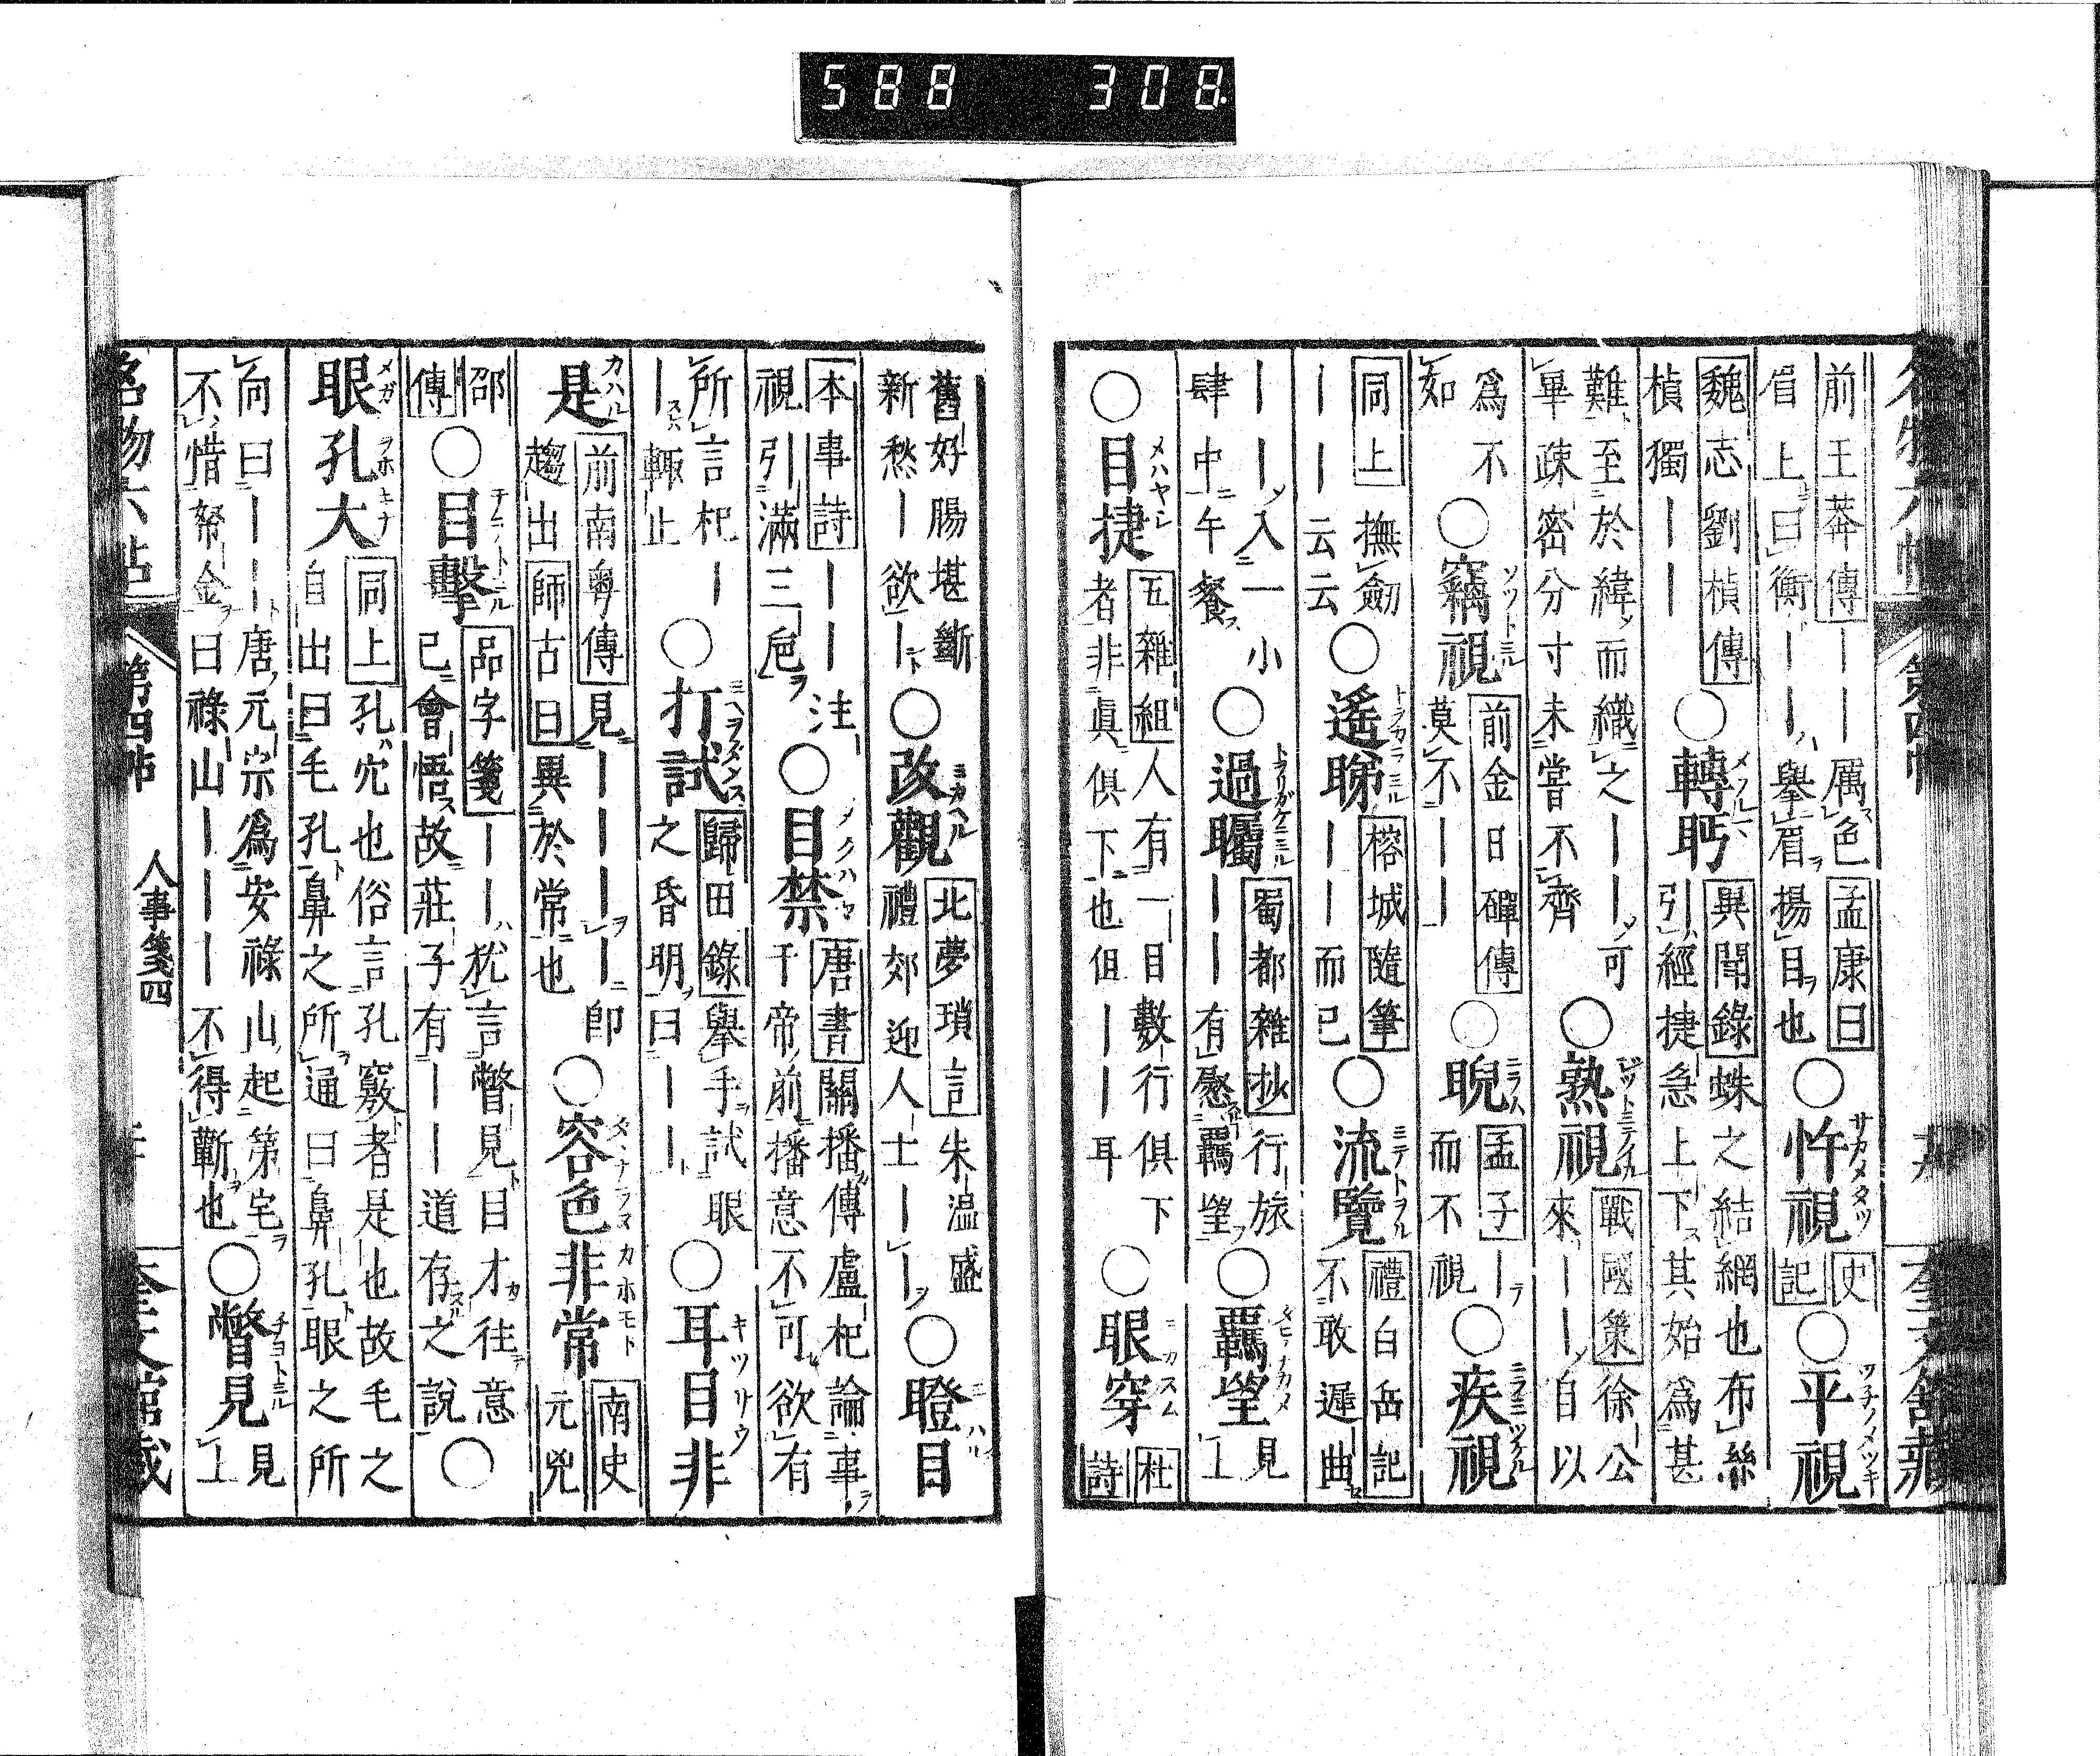 名物六帖 第四帖 奎文館藏
前王莽傳———厲色孟康曰
眉上曰衡——擧眉揚目也
○忤視 史記 ○平視
魏志劉楨傳
楨獨——
○轉眄 異聞錄蛛之結網也布絲
引經捷急上下其始爲甚
難至於緯而織之——可
畢疎密分寸未嘗不齊
○熟視 戰國策徐公
來——自以
爲不
如
○竊視 前金日磾傳
莫不——
○睨 孟子—
而不視
○疾視
同上撫劒
——云云
○遙睇 榕城隨筆
———而已
○流覽 禮白岳記
不敢遲曲
——入一小
肆中午餐
○過矚 蜀都雜抄行旅
———有慰羈望
○羈望 見上
○目捷 五雜組人有一目數行俱下
者非眞俱下也但——耳
○眼穿 杜詩
舊好腸堪斷
新愁—欲—
○改觀 北夢瑣言朱温盛
禮郊迎人士——
○瞪目
本事詩——注
視引滿三巵
○目禁 唐書關播傳盧杞論事
千帝前播意不可欲有
所言杞—
—輙止
○打試 歸田錄擧手試眼
之昏明曰——
○耳目非
是 前南粤傳見————卽
趨出師古曰異於常也
○容色非常 南史
元兇
邵
傳
○目擊 品字箋——犹言瞥見目才往意
已會悟故莊子有——道存之說
○
眼孔大 同上孔穴也俗言孔竅者是也故毛之
自出曰毛孔鼻之所通曰鼻孔眼之所
向曰———唐元宗爲安祿山起第宅
不惜帑金曰祿山———不得蘄也
○瞥見 見上
名物六帖 第四帖 人事箋四 奎文館藏
588 308